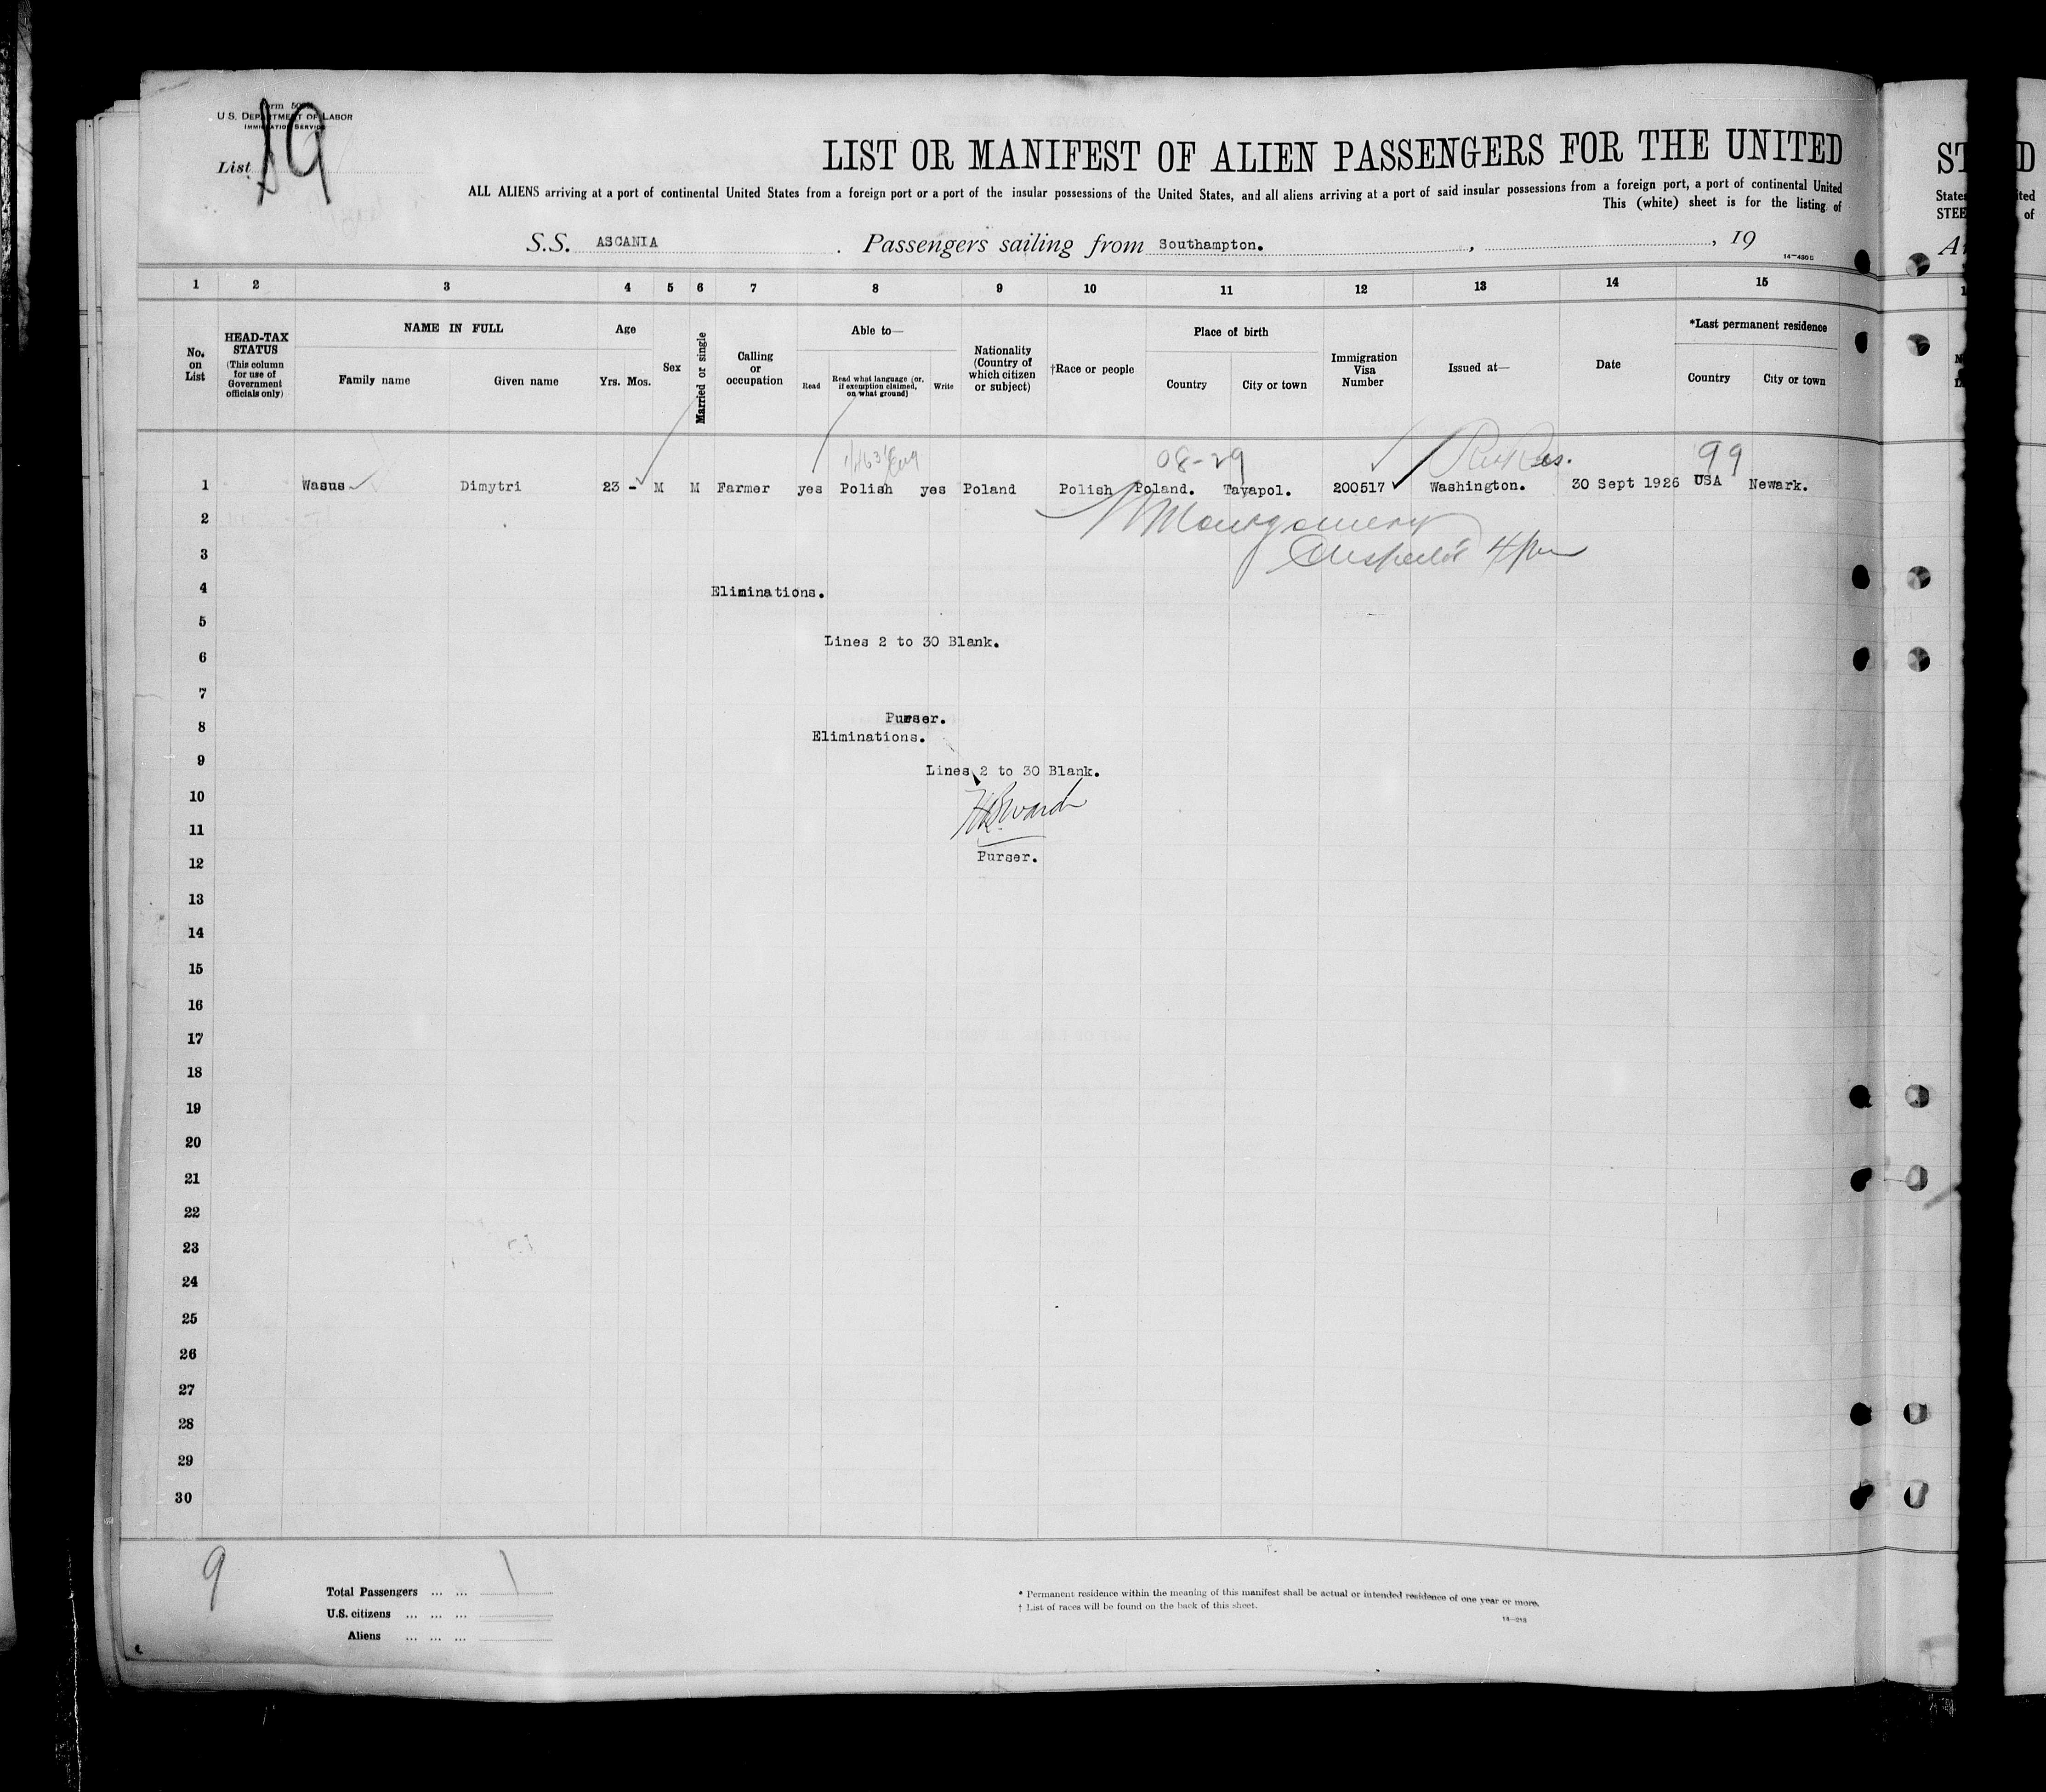 U.S. DEPARTMENT OF LABOR
IMMIGRATION SERVICE
List 19
LIST OR MANIFEST OF ALIEN PASSENGERS FOR THE UNITED
ALL ALIENS arriving at a port of continental United States from a foreign port or a port of the insular possessions of the United States, and all aliens arriving at a port of said insular possessions from a foreign port, a port of continental United
This (white) sheet is for the listing of
S.S. ASCANIA . Passengers sailing from Southampton. , , 19
1 2 3 4 5 6 7 8 9 10 11 12 13 14 15
No. on List
HEAD-TAX STATUS (This column for use of Government officials only)
NAME IN FULL
Family name Given name
Age
Yrs. Mos.
Sex
Married or single
Calling or occupation
Able to—
Read
Read what language (or, if exemption claimed, on what ground)
Write
Nationality (Country of which citizen or subject)
†Race or people
Place of birth
Country City or town
Immigration Visa Number
Issued at—
Date
*Last permanent residence
Country City or town
08-29
99
1 Wasus Dimytri 23 - M M Farmer yes Polish yes Poland Polish Poland. Tayapol. 200517 Washington. 30 Sept 1926 USA Newark.
2 Montgomery
3
4 Eliminations.
5
Lines 2 to 30 Blank.
6
7
Purser.
8
Eliminations.
9
Lines 2 to 30 Blank.
10
11
12 Purser.
13
14
15
16
17
18
19
20
21
22
23
24
25
26
27
28
29
30
9
Total Passengers ... ... 1
U.S. citizens ... ... ...
Aliens ... ... ...
* Permanent residence within the meaning of this manifest shall be actual or intended residence of one year or more.
† List of races will be found on the back of this sheet.